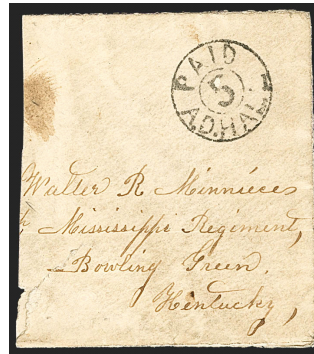 PAID
5
A.D.HALL
Walter R Minnieces
Mississippi Regiment,
Bowling Green.
Kentucky,